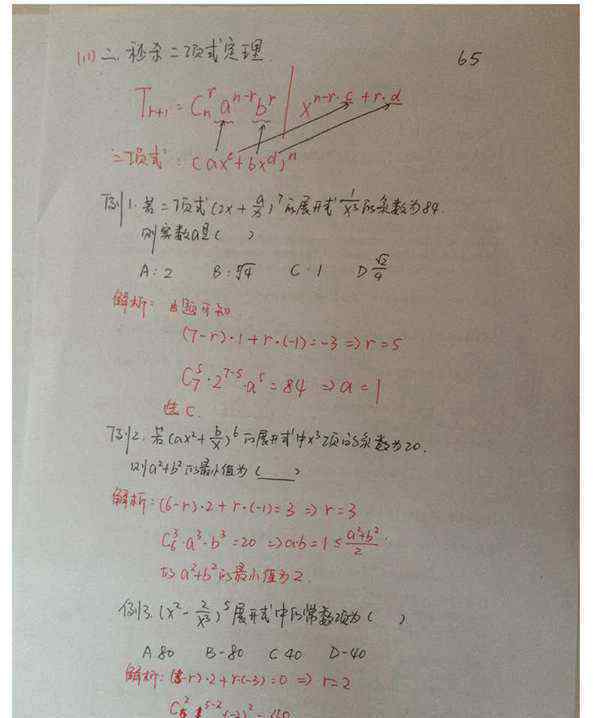 (11) 二. 秒杀二项式定理 65
T_{r+1} = C_n^r a^{n-r} b^r | x^{(n-r)·c + r·d}
二项式: (ax^c + bx^d)^n
例1. 若二项式 (2x + a/x)^7 的展开式 1/x^3 的系数为84.
则实数a是( )
A: 2 B: ⁵√4 C. 1 D √2/4
解析: 由题可知
(7-r)·1 + r·(-1) = -3 ⇒ r = 5
C_7^5 · 2^{7-5} · a^5 = 84 ⇒ a = 1
选C.
例2. 若(ax^2 + b/x)^6 的展开式中x^3项的系数为20.
则a^2+b^2的最小值为( )
解析: (6-r)·2 + r·(-1) = 3 ⇒ r = 3
C_6^3 · a^3 · b^3 = 20 ⇒ a·b = 1 ≤ (a^2+b^2)/2
故a^2+b^2的最小值为2.
例3. (x^2 - 2/x^3)^5 展开式中的常数项为( )
A 80 B -80 C 40 D -40
解析: (5-r)·2 + r·(-3) = 0 ⇒ r = 2